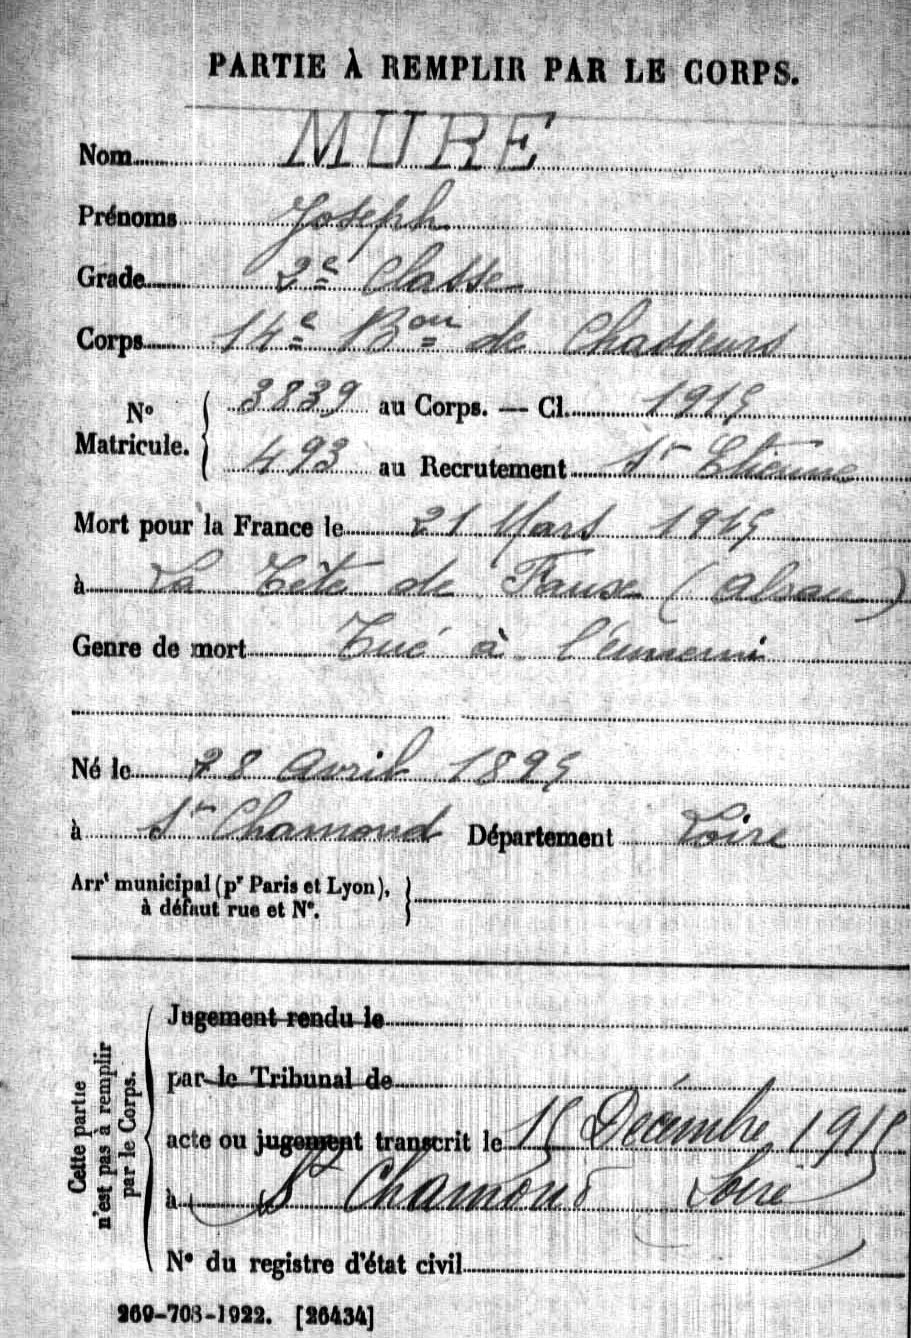 PARTIE À REMPLIR PAR LE CORPS.
Nom MURE
Prénoms Joseph
Grade 2e Classe
Corps 14e Bon de Chasseurs
No Matricule. 3839 au Corps. — Cl. 1915
493 au Recrutement St Etienne
Mort pour la France le 21 Mars 1915
à La Tête de Faux (Alsace)
Genre de mort Tué à l'ennemi
Né le 28 Avril 1895
à St Chamond Département Loire
Arrt municipal (pr Paris et Lyon),
à défaut rue et No.
Cette partie n'est pas à remplir par le Corps.
Jugement rendu le
par le Tribunal de
acte ou jugement transcrit le 15 Décembre 1915
à St Chamond Loire
No du registre d'état civil
269-708-1922. [26434]